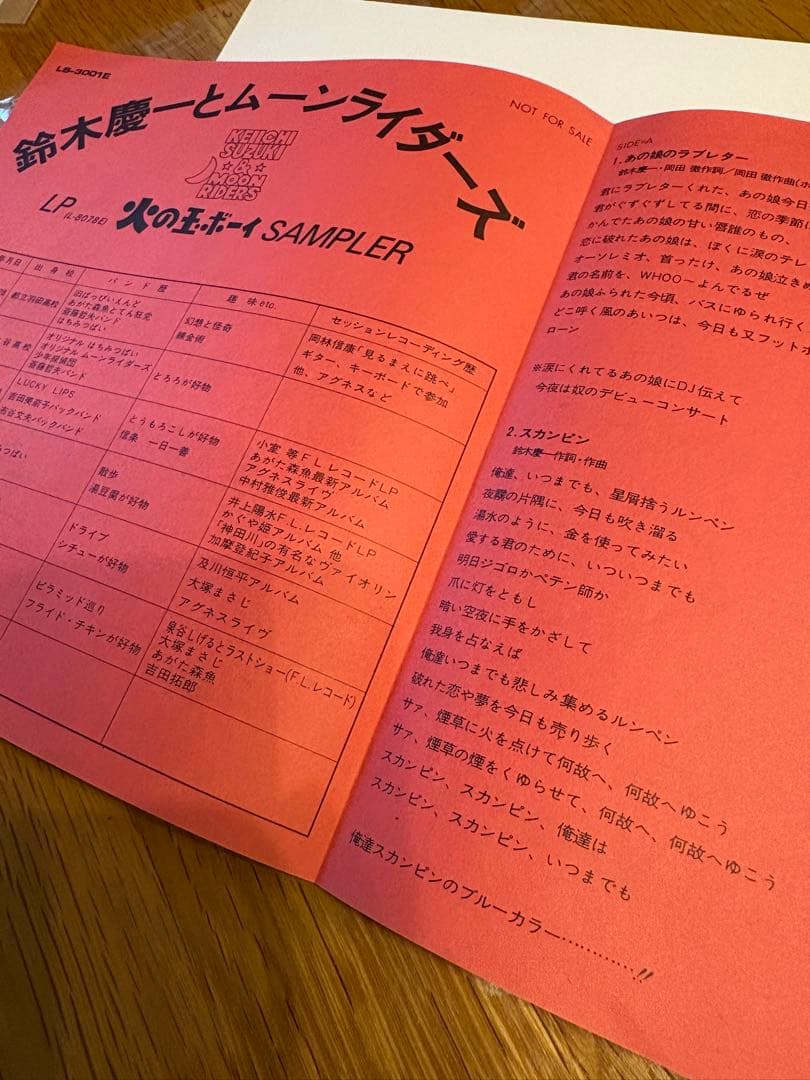 LS-3001E
NOT FOR SALE
鈴木慶一とムーンライダーズ
KEIICHI
SUZUKI
☆&☆
MOON
RIDERS
LP (L-8078E) 火の玉ボーイ SAMPLER
年月日 出身校 バンド歴 趣味etc. セッションレコーディング歴
都立羽田高校
旧はっぴいえんど
あがた森魚とてん狂党
斎藤哲夫バンド
はちみつぱい
幻想と怪奇
錬金術
岡林信康「見るまえに跳べ」
ギター、キーボードで参加
他、アグネスなど
谷高校
オリジナル はちみつぱい
オリジナル ムーンライダーズ
少年探偵団
斎藤哲夫バンド
とろろが好物
LUCKY LIPS
吉田美奈子バックバンド
岩谷文夫バックバンド
とうもろこしが好物
信条 一日一善
小室 等F.L.レコードLP
あがた森魚最新アルバム
アグネスライヴ
中村雅俊最新アルバム
みつぱい
散歩
湯豆腐が好物
井上陽水F.L.レコードLP
かぐや姫アルバム 他
「神田川」の有名なヴァイオリン
加摩登紀子アルバム
ドライブ
シチューが好物
及川恒平アルバム
大塚まさじ
アグネスライヴ
ピラミッド巡り
フライド・チキンが好物
泉谷しげるとラストショー(F.L.レコード)
大塚まさじ
あがた森魚
吉田拓郎
SIDE=A
1. あの娘のラブレター
鈴木慶一・岡田 徹作詞/岡田 徹作曲
君にラブレターくれた、あの娘今日
君がぐずぐずしてる間に、恋の季節
かんでたあの娘の甘い唇誰のもの、
恋に破れたあの娘は、ぼくに涙のテレ
オーソレミオ、首ったけ、あの娘泣き
君の名前を、WHOO〜よんでるぜ
あの娘ふられた今頃、バスにゆられ行く
どこ呼く風のあいつは、今日も又フット
ローン
※涙にくれてるあの娘にDJ伝えて
今夜は奴のデビューコンサート
2. スカンピン
鈴木慶一作詞・作曲
俺達、いつまでも、星屑捨うルンペン
夜霧の片隅に、今日も吹き溜る
湯水のように、金を使ってみたい
愛する君のために、いついつまでも
明日ジゴロかペテン師か
爪に灯をともし
暗い空夜に手をかざして
我身を占なえば
俺達いつまでも悲しみ集めるルンペン
破れた恋や夢を今日も売り歩く
サァ、煙草に火を点けて何故へ、何故へゆこう
サァ、煙草の煙をくゆらせて、何故へ、何故へゆこう
スカンピン、スカンピン、俺達は
スカンピン、スカンピン、いつまでも
俺達スカンピンのブルーカラー…………!!